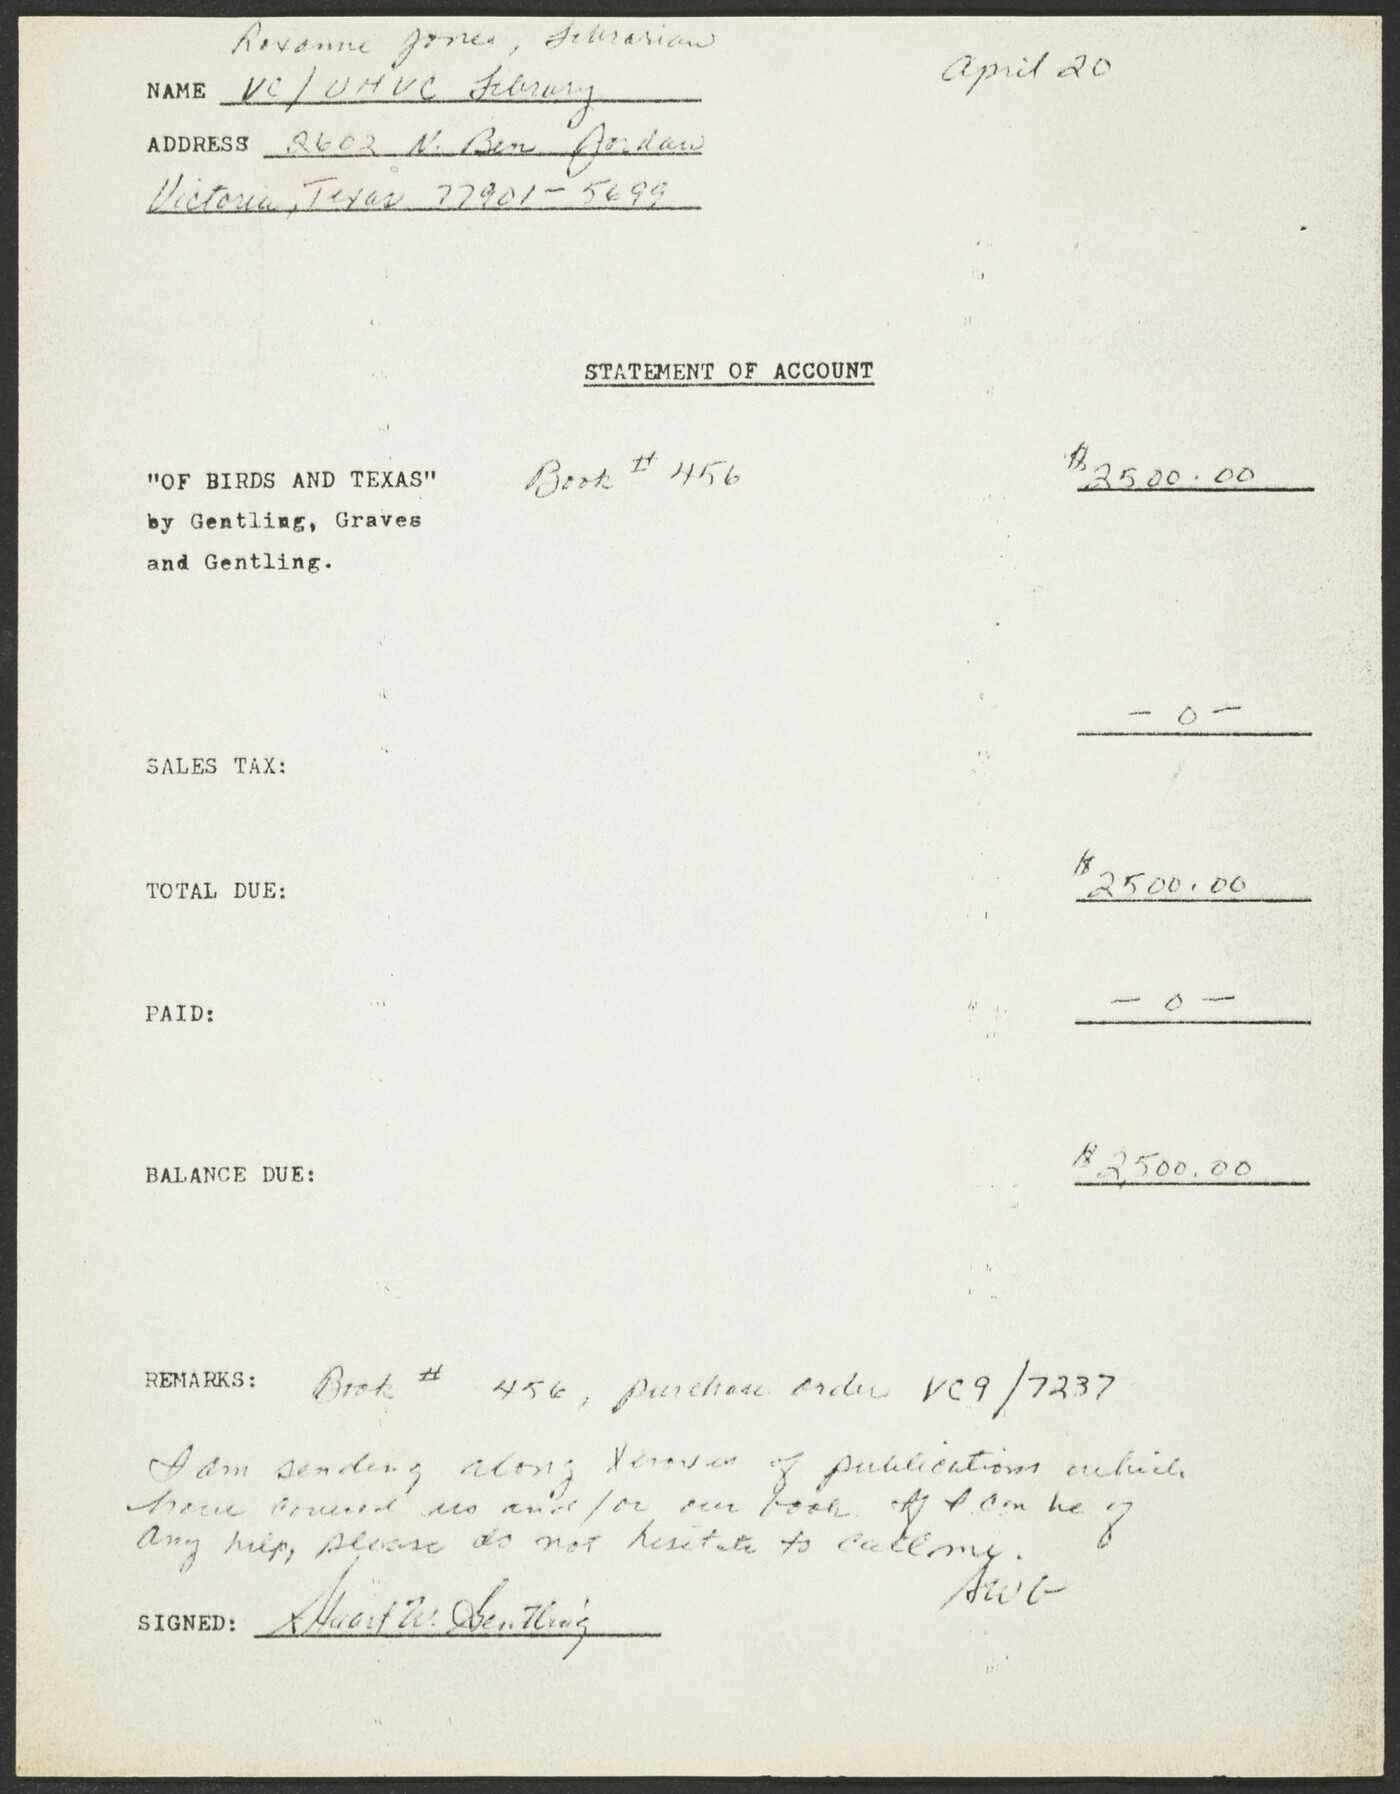 Roxanne Jones, Librarian
April 20
NAME VC/UHVC Library
ADDRESS 2602 N. Ben Jordan
Victoria, Texas 77901-5699
STATEMENT OF ACCOUNT
"OF BIRDS AND TEXAS" Book # 456 $2500.00
by Gentling, Graves
and Gentling.
- 0 -
SALES TAX:
TOTAL DUE: $2500.00
PAID: - 0 -
BALANCE DUE: $2,500.00
REMARKS: Book # 456, purchase order VC9/7237
I am sending along Xeroxes of publications which
have covered us and/or our book. If I can be of
any help, please do not hesitate to call me.
SWG
SIGNED: Stuart W. Gentling